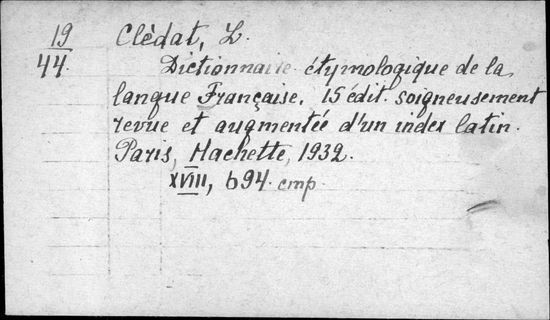 19
44.
Clèdat, L.
Dictionnaire étymologique de la
langue Française. 15 édit. soigneusement
revue et augmentée d'un index latin.
Paris, Hachette, 1932.
XVIII, 694. стр.